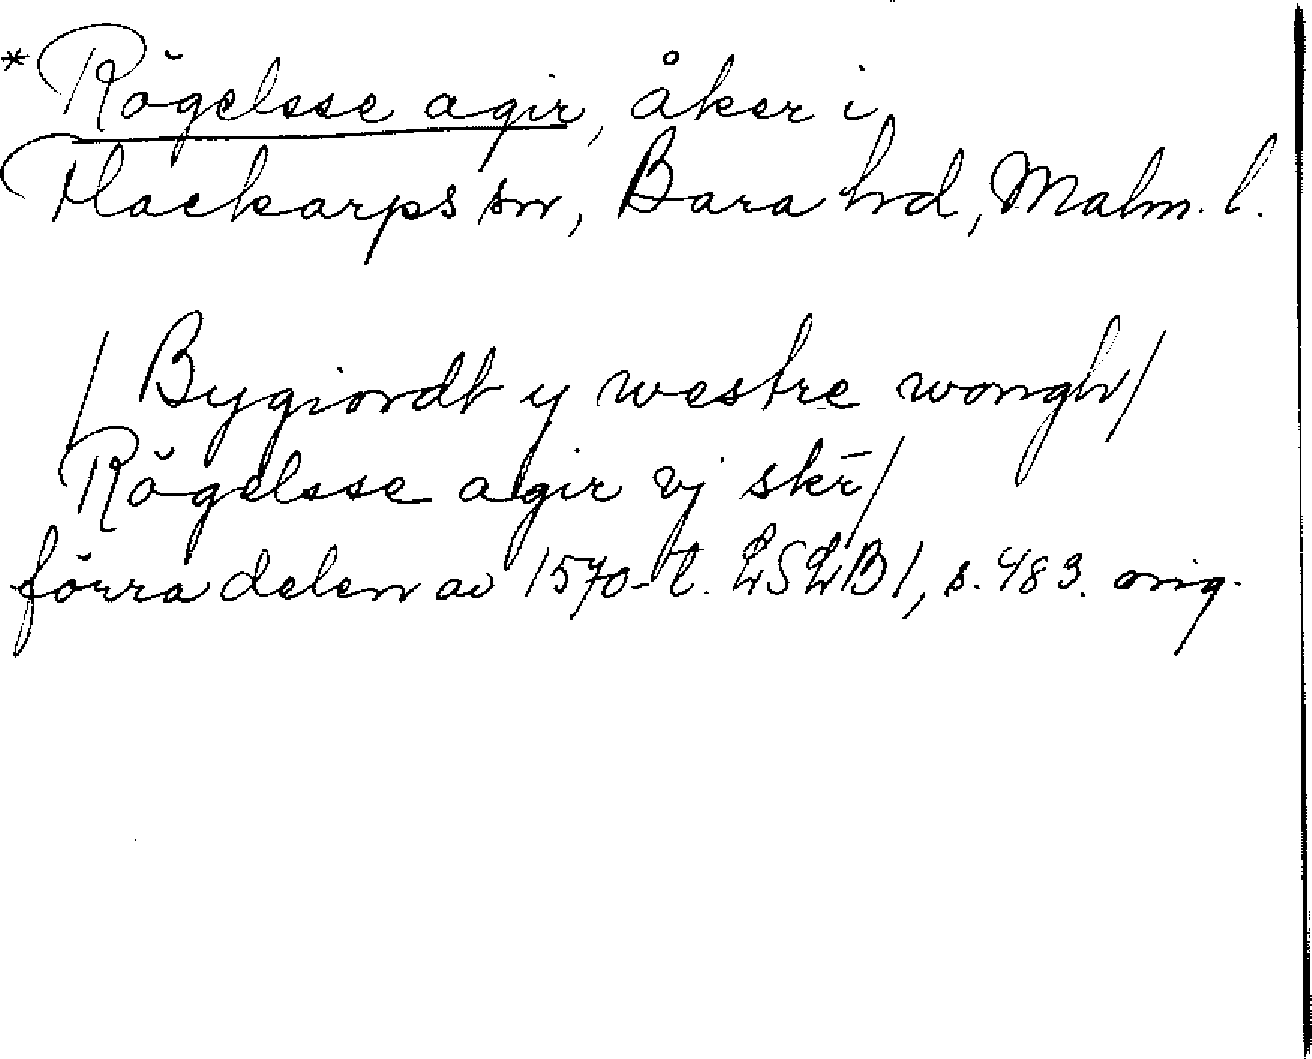 *Rögelsse agir, åker i
Flackarps sn, Bara hd, Malm. l.
/Bygiordt y westre wongh/
Rögelsse agir vj skr̄/
förra delen av 1570-t. LSLB1, s. 483. orig.